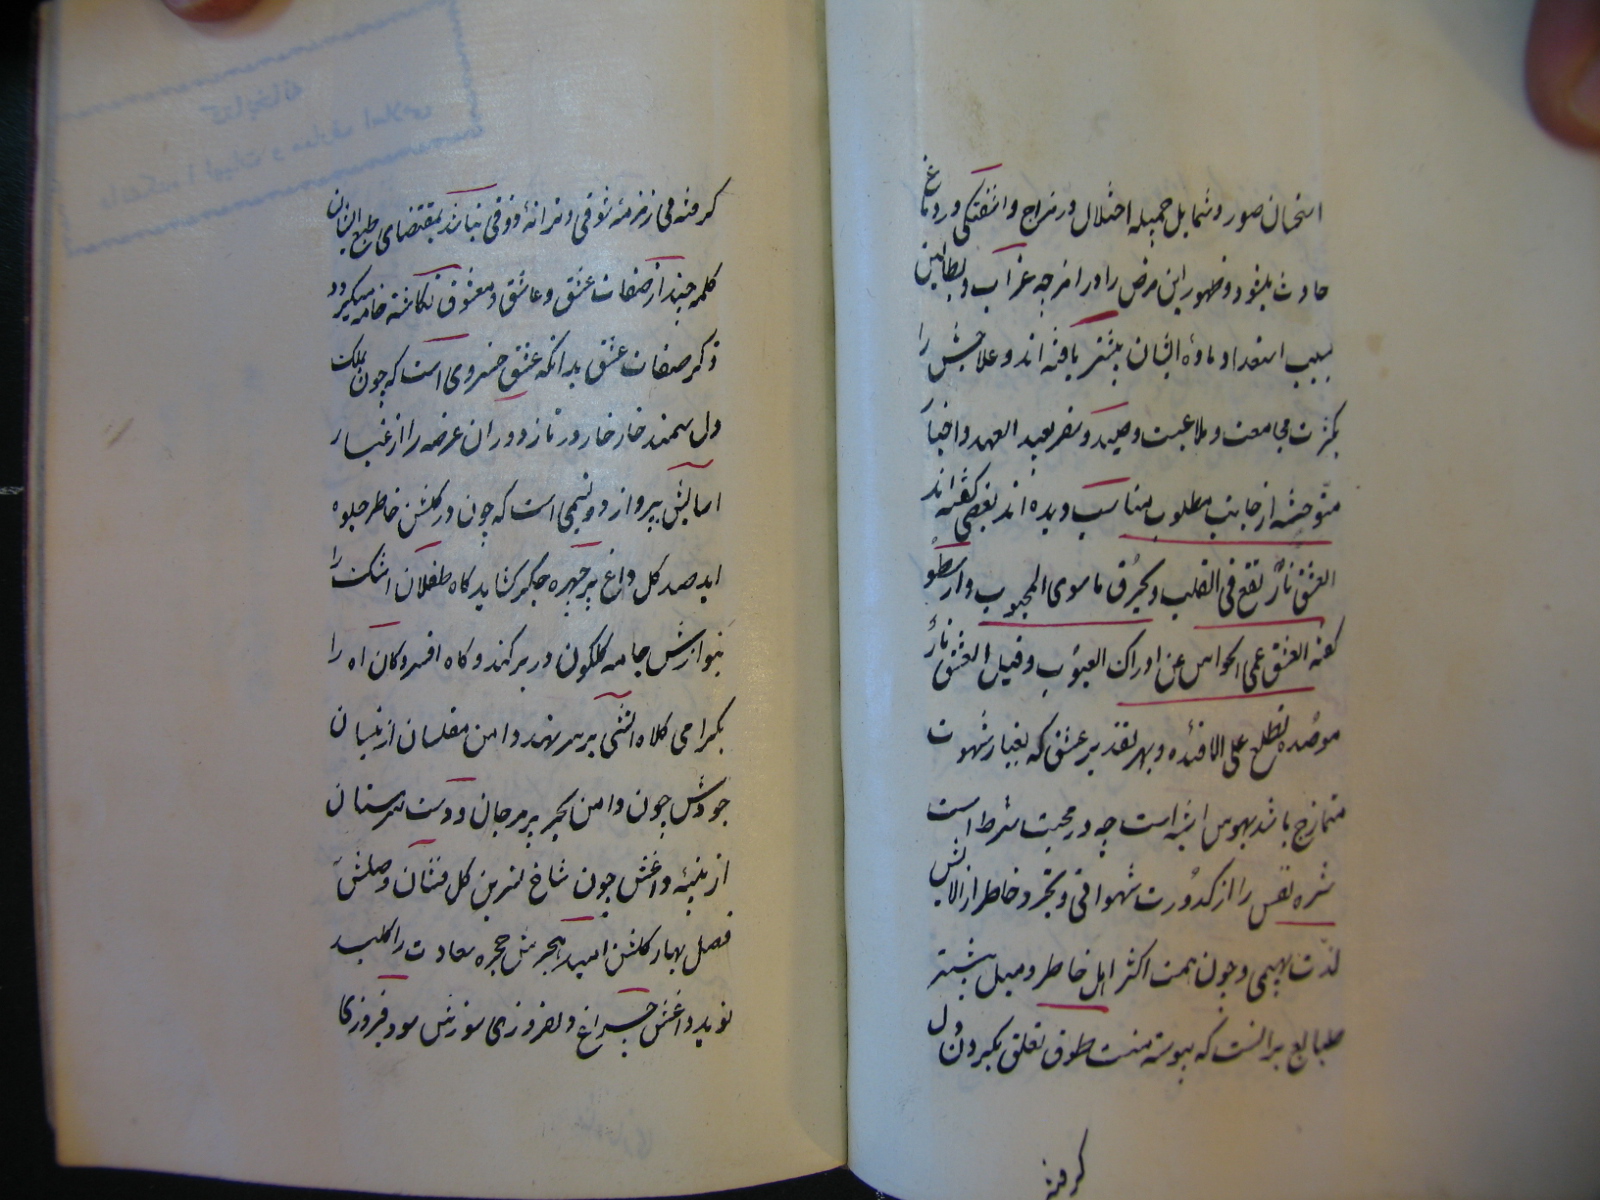 استحسان صور و شمایل جمیله اختلال در مزاج و آشفتگی در دماغ
حادث میشود و ظهور این مرض را در امزجه عزاب و بطالین
بسبب استعداد ماده ایشان بیشتر یافته اند و علاجش را
بکثرت مجامعت و ملاعبت و صید و سفر بعید العهد و اخبار
متوحشه از جانب مطلوب مناسب دیده اند بعضی گفته اند
العشق نارٌ تقع فی القلب و یحرق ما سوی المحبوب و ارسطو
گفته العشق عمی الحواس عن ادراک العیوب و قیل العشق نارٌ
موصده تطلع علی الافئده و بهر تقدیر عشق که بغبار شهوت
متمازج باشد بهوس اشبه است چه در محبت شرط است
تنزه نفس را از کدورت شهوانی و تجرد خاطر از الایش
لذت بهیمی و چون همت اکثر اهل خاطر و میل بیشتر
طبایع برانست که پیوسته منت طوق تعلق بگردن دل
گرفته
گرفته بی زمزمهٔ شوقی و ترانهٔ ذوقی نباشد بمقتضای طبع ایشان
کلمه چند از صفات عشق و عاشق و معشوق نگاشته خامه میگردد
ذکر صفات عشق بدانکه عشق خسروی است که چون بملک
دل سمند خار خار در تاز و دوران عرصه را از غبار
اسایش بپردازد و نسیمی است که چون در گلشن خاطر جلوه
اید صد گل داغ بر چهره جگر گشاید گاه طفلان اشک را
بنوازش جامه گلگون در بر کند و گاه افسردگان اه را
بگرامی کلاه اتشی بر سر نهد دامن مفلسان از نیسان
جودش چون دامن بحر پر مرجان و دست تهیدستان
از پنبهٔ داغش چون شاخ نسرین گل فشان وصلش
فصل بهار گلشن امید هجرش حجره سعادت را کلید
نوید داغش چراغ دلفروزی سوزش سود فروزی